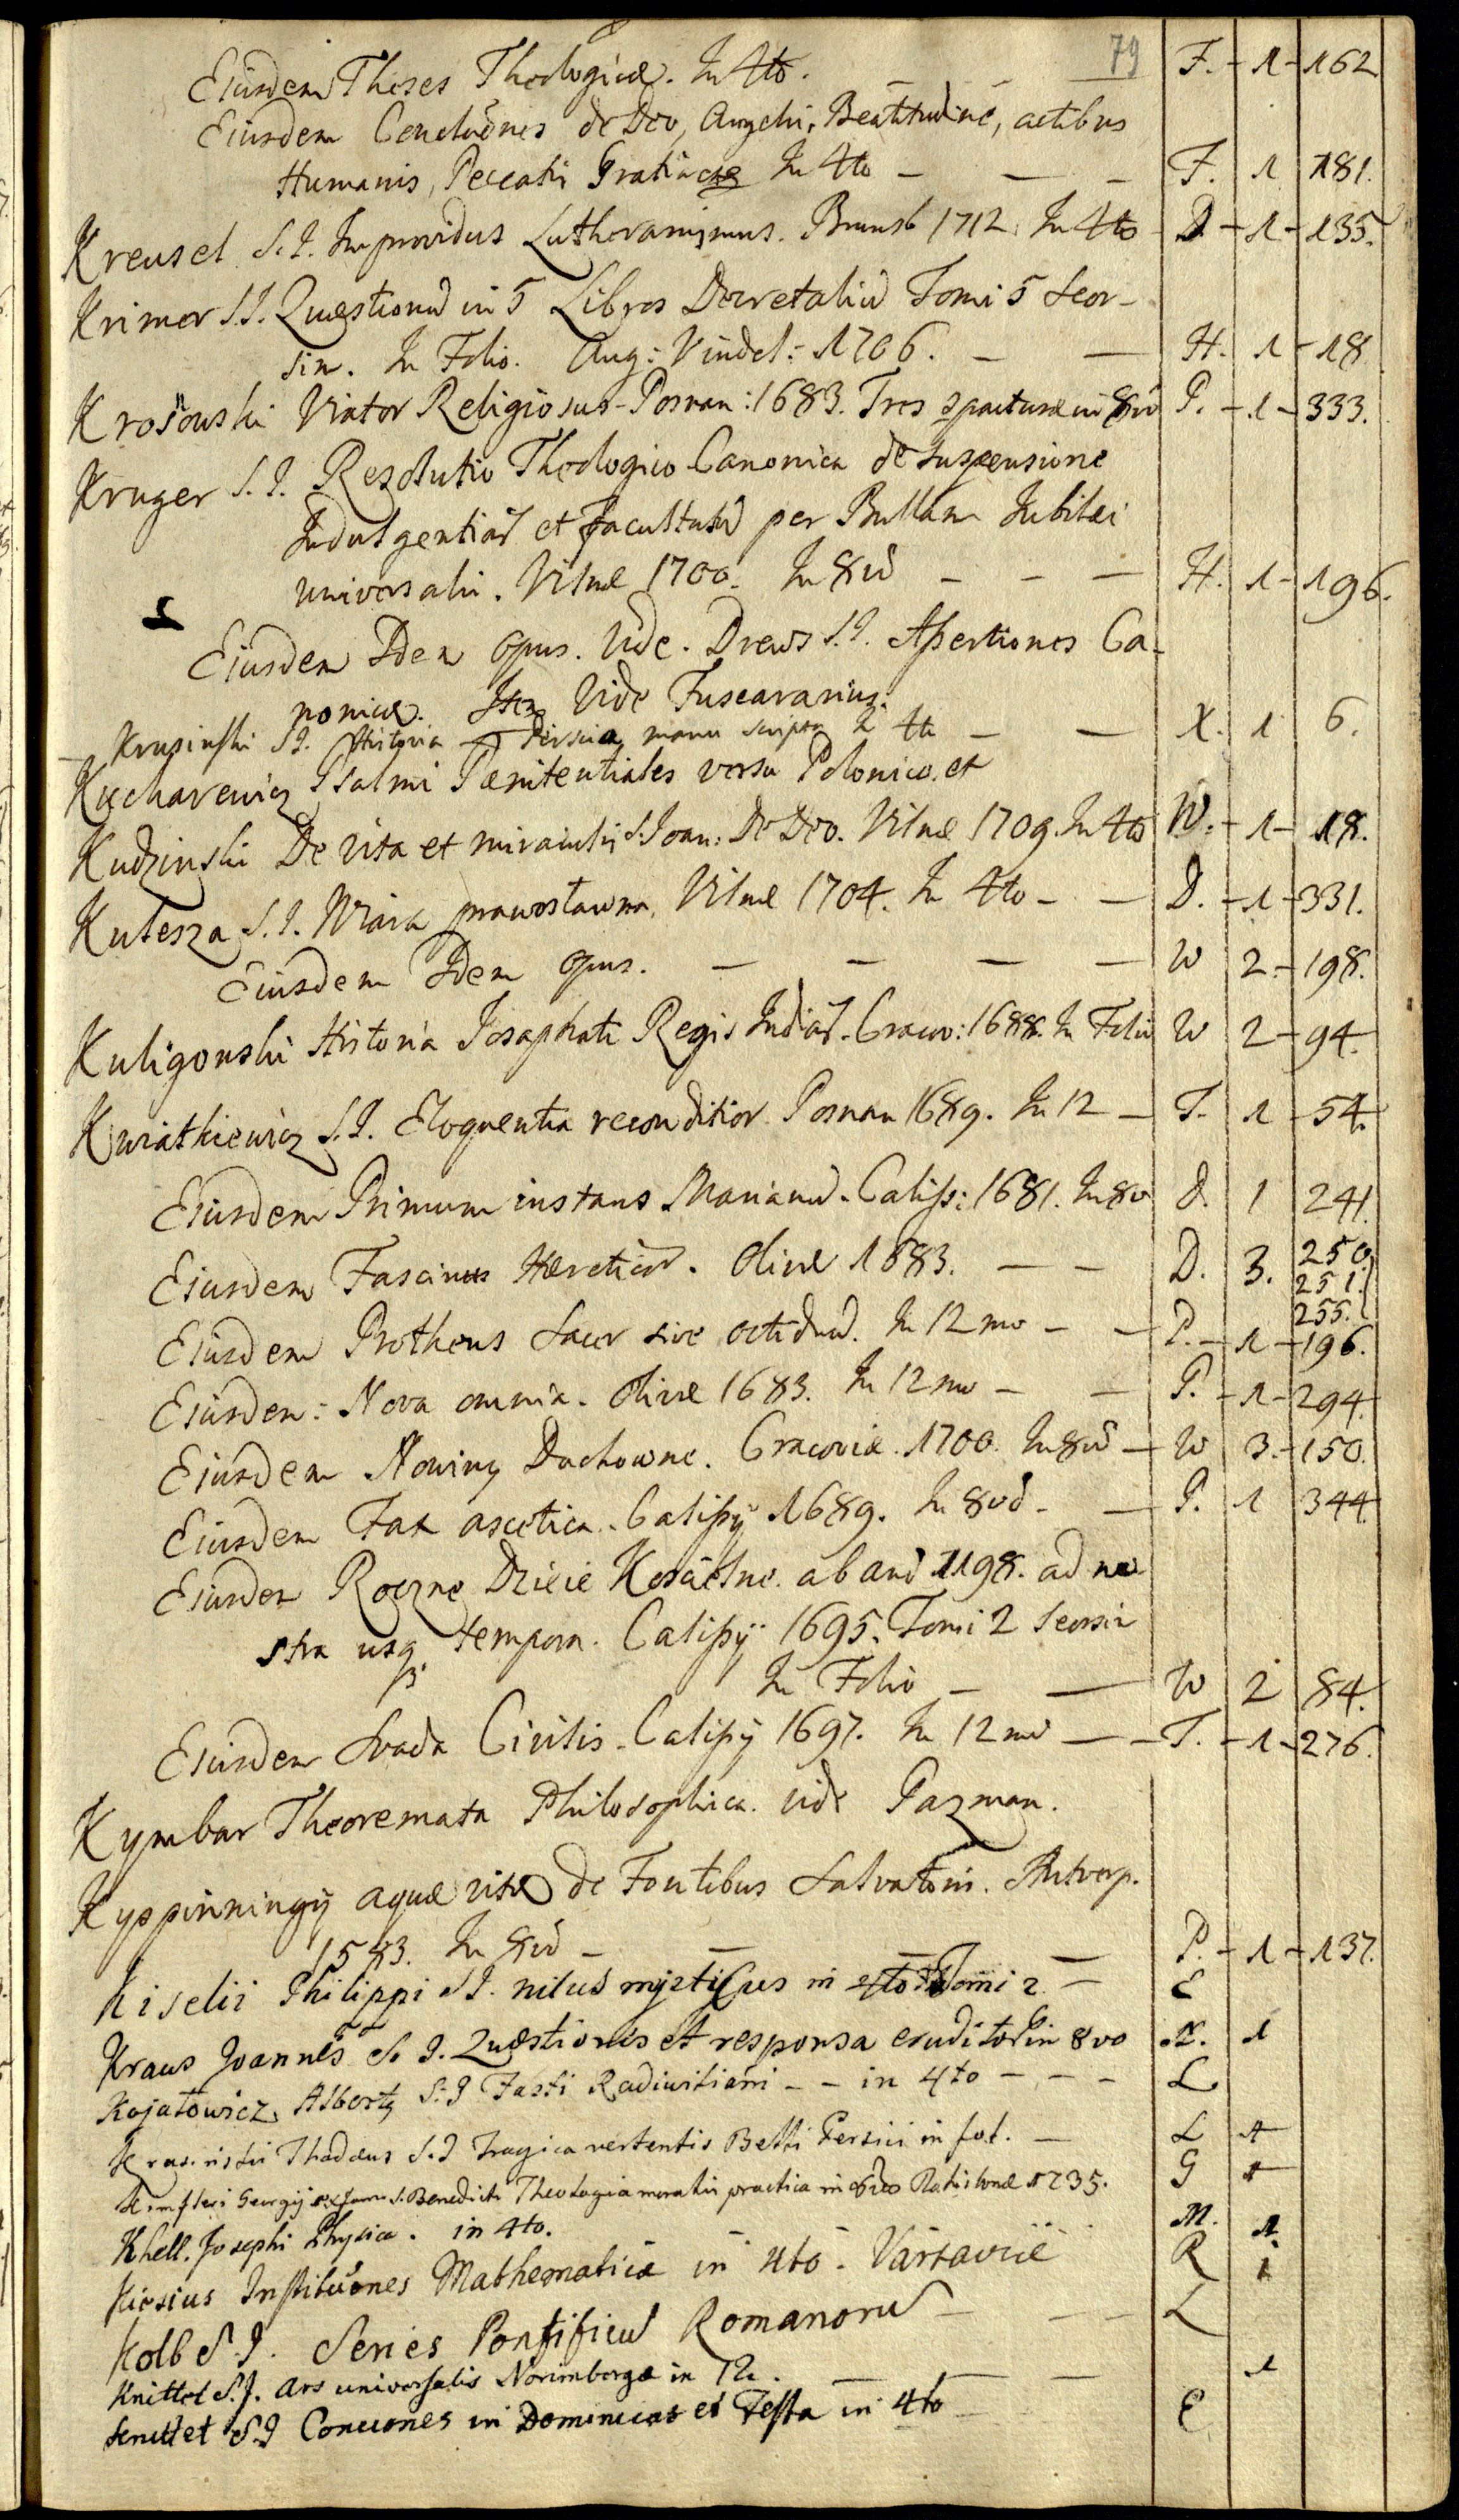 79
Eiusdem Theses Theologicæ. In 4to. — — F. - 1 - 162
Eiusdem Conclusiones de Deo, Angelis, Beatitudine, actibus
Humanis, Peccatis Gratiaq̃ In 4to — — — F. 1 181.
Kreusel S.I. Improvidus Lutheranismus. Brunsb 1712. In 4to D - 1 - 135.
Krimer S.I. Quæstionũ in 5 Libros Decretaliũ Tomi 5 Seor-
sim. In Folio. Aug: Vindel: 1706. — — H. 1 - 18
Krosnowski Viator Religiosus Posnan: 1683. Tres in 8vo P. - 1 - 333.
Kruger S.I. Resolutio Theologico Canonica de Suspensione
Indulgentiar̃ et facultatũ per Bullam Jubilæi
universalis. Vilnæ 1700. In 8vo — — — H. 1 - 196.
Eiusdem Idem opus. Vide. Drews S.I. Assertiones Ca-
nonicæ. Item Vide Fuscararius.
Krusinski S.I. Historia Persica manu scripta in 4to — — X. 1 6.
Kucharewicz Psalmi Pænitentiales versu Polonico. et
Kudzinski De vita et miraculis S. Joan: De Deo. Vilnæ 1709. In 4to W. - 1 - 18.
Kulesza S.I. Wiara prawosławna. Vilnæ 1704. In 4to — — D. - 1 - 331.
Eiusdem Idem opus. — — — — W 2. - 198.
Kuligowski Historia Josaphati Regis Indiar̃. Cracov: 1688. In Folio W 2 - 94.
Kwiatkiewicz S.I. Eloquentia reconditior Posnan 1689. In 12 — T. 1 - 54.
Eiusdem Primum instans Marianũ. Caliss: 1681. In 8vo D. 1 241.
Eiusdem Fascinus Hæreticor̃. Olivæ 1683. — — D. 3. 250.
251.
255.
Eiusdem Protheus Sacer sive octiduũ. In 12mo — — P. - 1 - 196.
Eiusdem: Nova omnia. Olivæ 1683. In 12mo — — P. - 1 - 294.
Eiusdem Nowiny Duchowne. Cracoviæ. 1700. In 8vo — W 3. - 150.
Eiusdem Fax ascetica. Calissij 1689. In 8vo — — P. 1 344
Eiusdem Roczne Dzieie Kościelne. ab anõ 1198. ad no
stra usq̃ tempora. Calissij 1695. Tomi 2 Seorsim
In Folio — — W 2 84.
Eiusdem Svada Civilis. Calissij 1697. In 12mo — — T. - 1 - 276.
Kymbar Theoremata Philosophica. vide Pazman.
Kyspinningij aquæ vitæ de Fontibus Salvatoris. Antverp.
1583. In 8vo — — — — P. - 1 - 137.
Kiselii Philippi S.I. nilus mysticus in 4to Tomi 2. — E
Kraus Joannes S. I. Quæstiones et responsa eruditor̃ in 8vo N. 1
Kojałowicz Albertȝ S: J Fasti Radiviliani — — in 4to — — — L
Krusinski Thadæus S. I Tragica vertentis Belli Persici in fol. — L 1
Georgij S. Benedicti Theologia moralis practica in 8vo Ratisbonæ 1735. G 1
Khell. Josephi Physica. in 4to. M. 1
Kiesius Institutiones Mathematicæ in 4to. Varsaviæ R 1
Kolb S. J. Series Pontificũ Romanorũ — — — L
Knittel S. J. Ars universalis Norimbergæ in 12. — — — 1
Knittel S. J Conciones in Dominicas et Festa in 4to — E